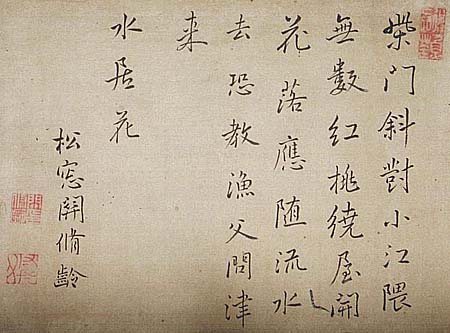 柴门斜對小江隈
無數红桃繞屋開
花落應随流水
去恐教漁父問津
来
水居花
松窓関脩齡